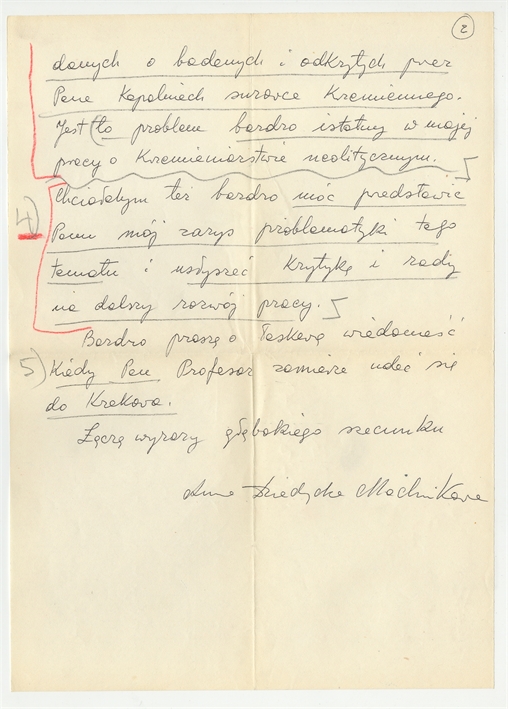 2
danych o badanych i odkrytych przez
Pana Kopalniach surowca Krzemiennego.
Jest to problem bardzo istotny w mojej
pracy o Krzemieniarstwie neolitycznym.
Chciałabym też bardzo móc przedstawić
4) Panu mój zarys problematyki tego
tematu i usłyszeć krytykę i rady
na dalszy rozwój pracy.
Bardzo proszę o łaskawą wiadomość
5) Kiedy Pan Profesor zamierza udać się
do Krakowa.
Łączę wyrazy głębokiego szacunku
Anna Dziedzicka Machnikowa